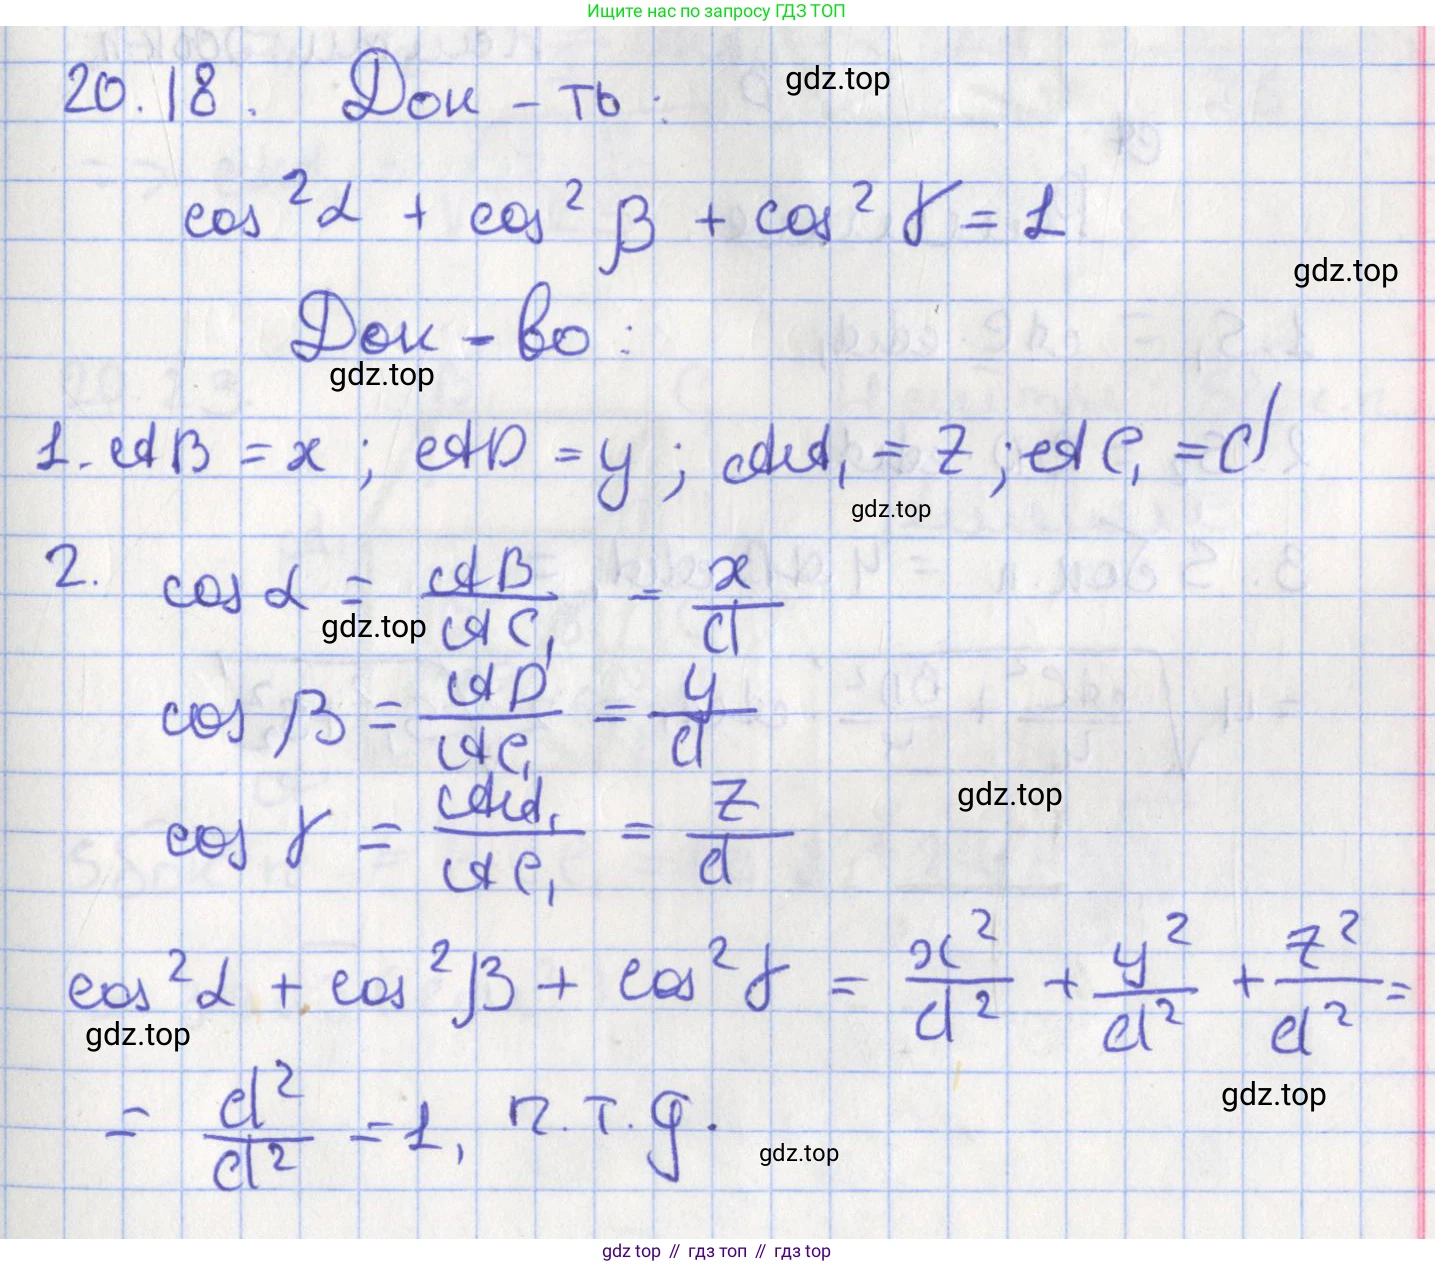 Ищите нас по запросу ГДЗ ТОП
20.18. Док-ть:
gdz.top
cos²α + cos²β + cos²γ = 1
gdz.top
Док-во:
gdz.top
1. AB = x; AD = y; AA₁ = z; AC₁ = d
gdz.top
2. cos α = AB/AC₁ = x/d
gdz.top
cos β = AD/AC₁ = y/d
gdz.top
cos γ = AA₁/AC₁ = z/d
cos²α + cos²β + cos²γ = x²/d² + y²/d² + z²/d² =
gdz.top
gdz.top
= d²/d² = 1, п.т.д.
gdz.top
gdz.top // гдз топ // gdz.top